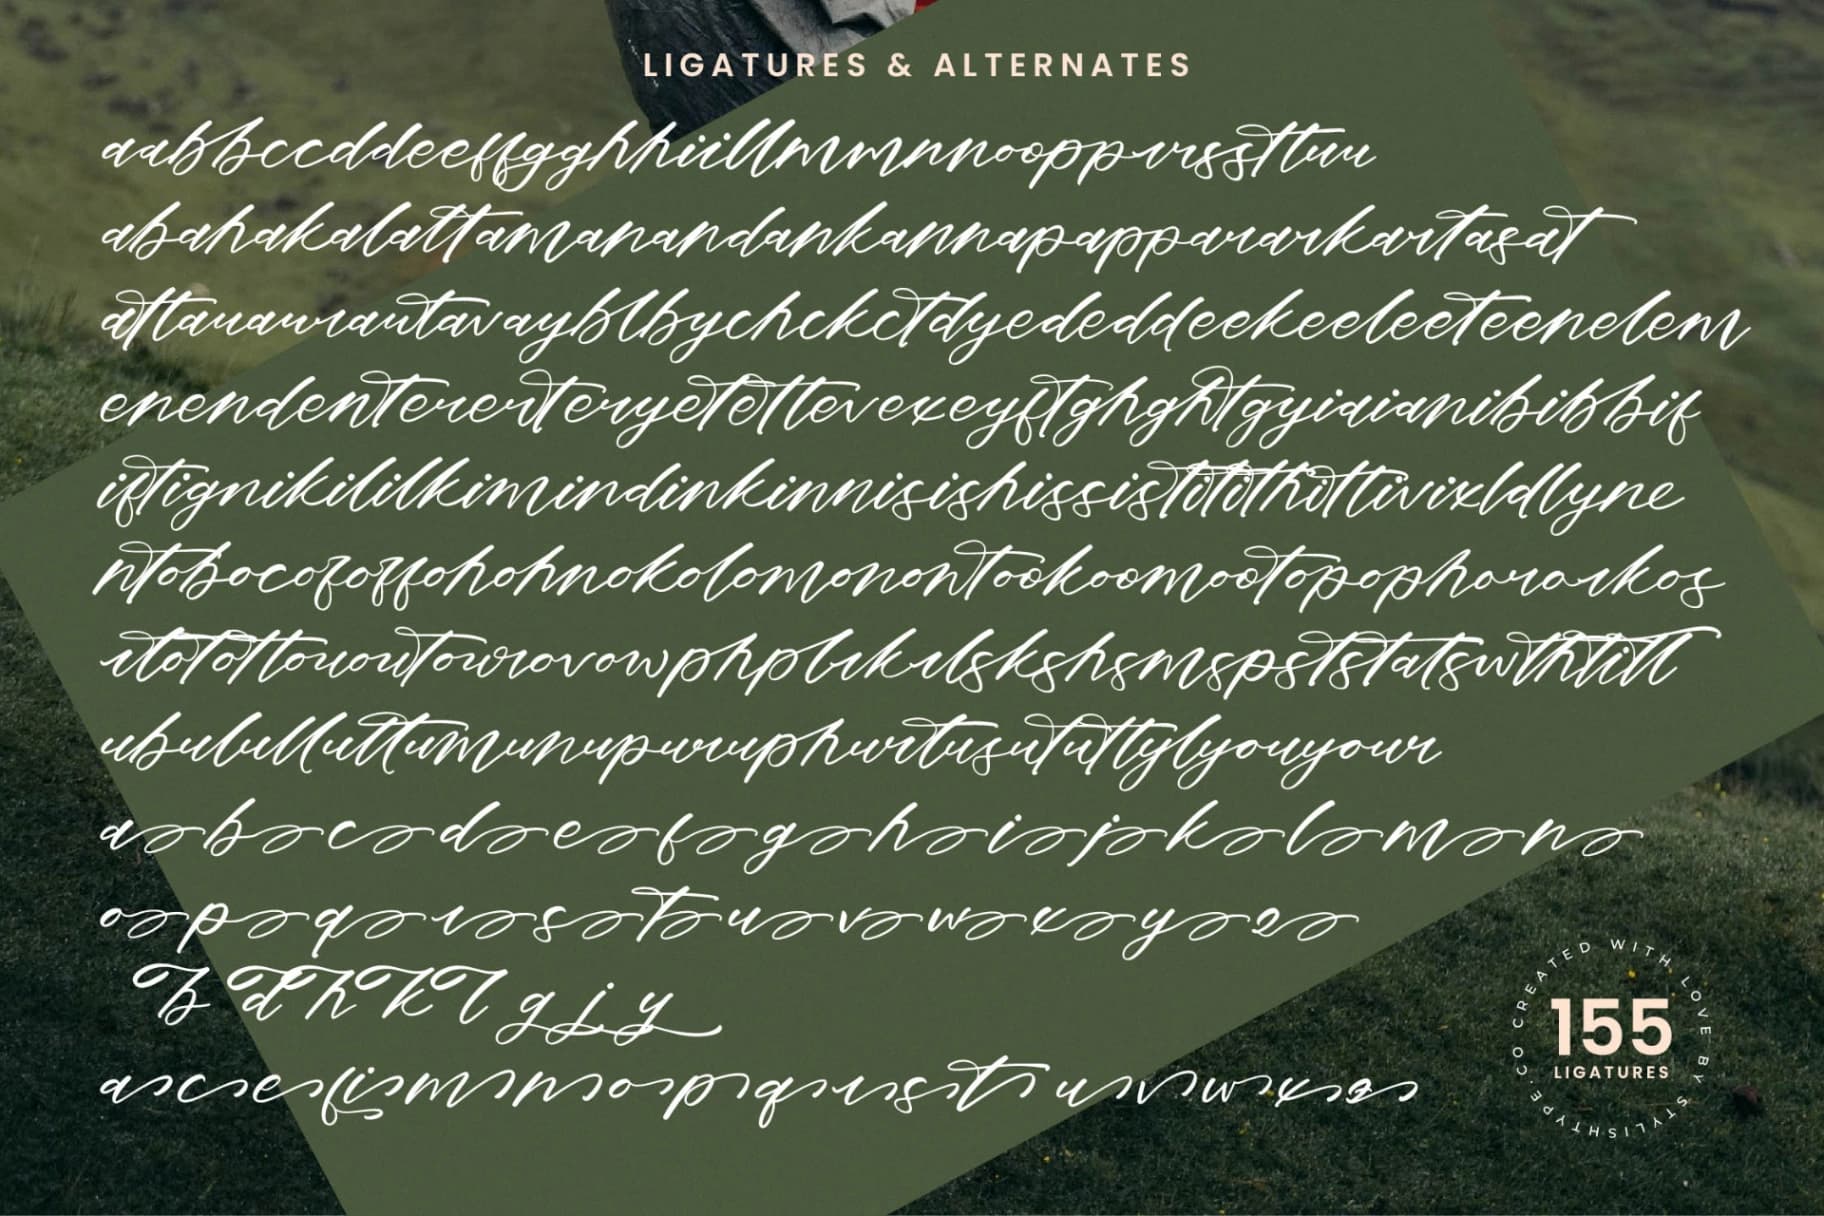 LIGATURES & ALTERNATES
aabbccddeeffgghhiillmmnnoopprrssttuu
abahakalattamanandankannapapparararkartasat
attauauraurautavayblbychckctdyededdeekeeleeteenelem
enendentererterryetettevexeyftghghtgyiaianibibbbif
iftignikililkimindinkinnisishississtititthittivixldlyne
ntobocofoffohohnokolomonontookoomootopophororkos
rtotottououtourovowphplrkrlskshsmspststatswthtitl
ubululluttumunupururphurtusututtylyouyour
a b c d e f g h i j k l m n
o p q r s t u v w x y z
b d h k l g j y
a c e f i m n o p q r s t u v w x z
CREATED WITH LOVE BY STYLISHTYPE.CO
155
LIGATURES